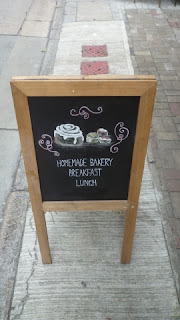 HOMEMADE BAKERY
BREAKFAST
LUNCH